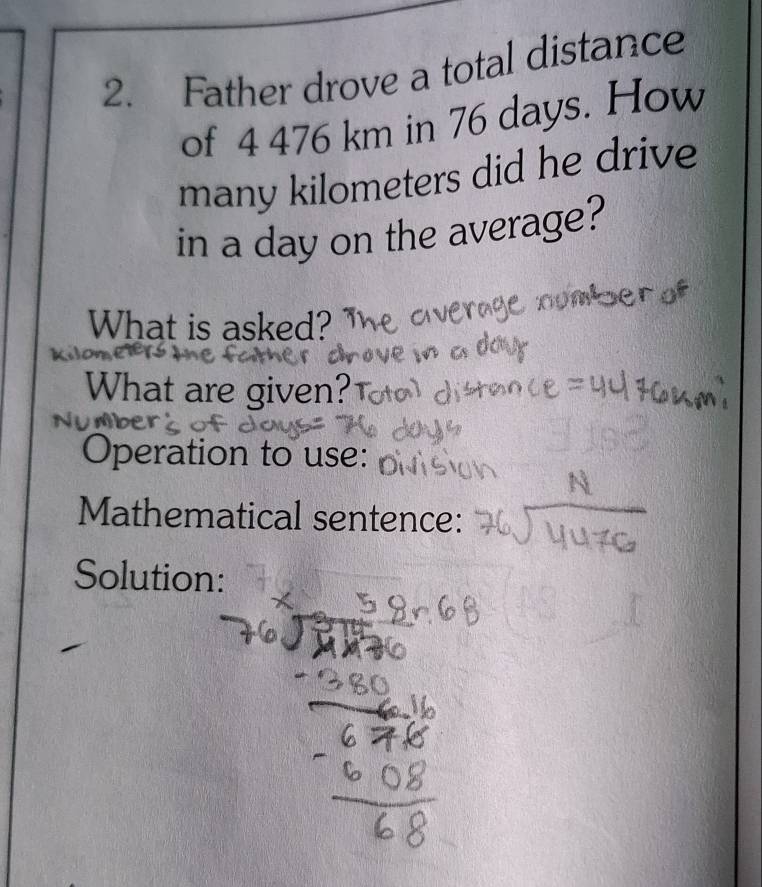 2. Father drove a total distance
of 4 476 km in 76 days. How
many kilometers did he drive
in a day on the average?
What is asked? The average number of
kilometers the father drove in a day
What are given? Total distance = 4476km;
Number's of days= 76 days
Operation to use: Division
Mathematical sentence: 76√4476
N
Solution:
x 58r.68
76√4476
-380
676
- 608
68